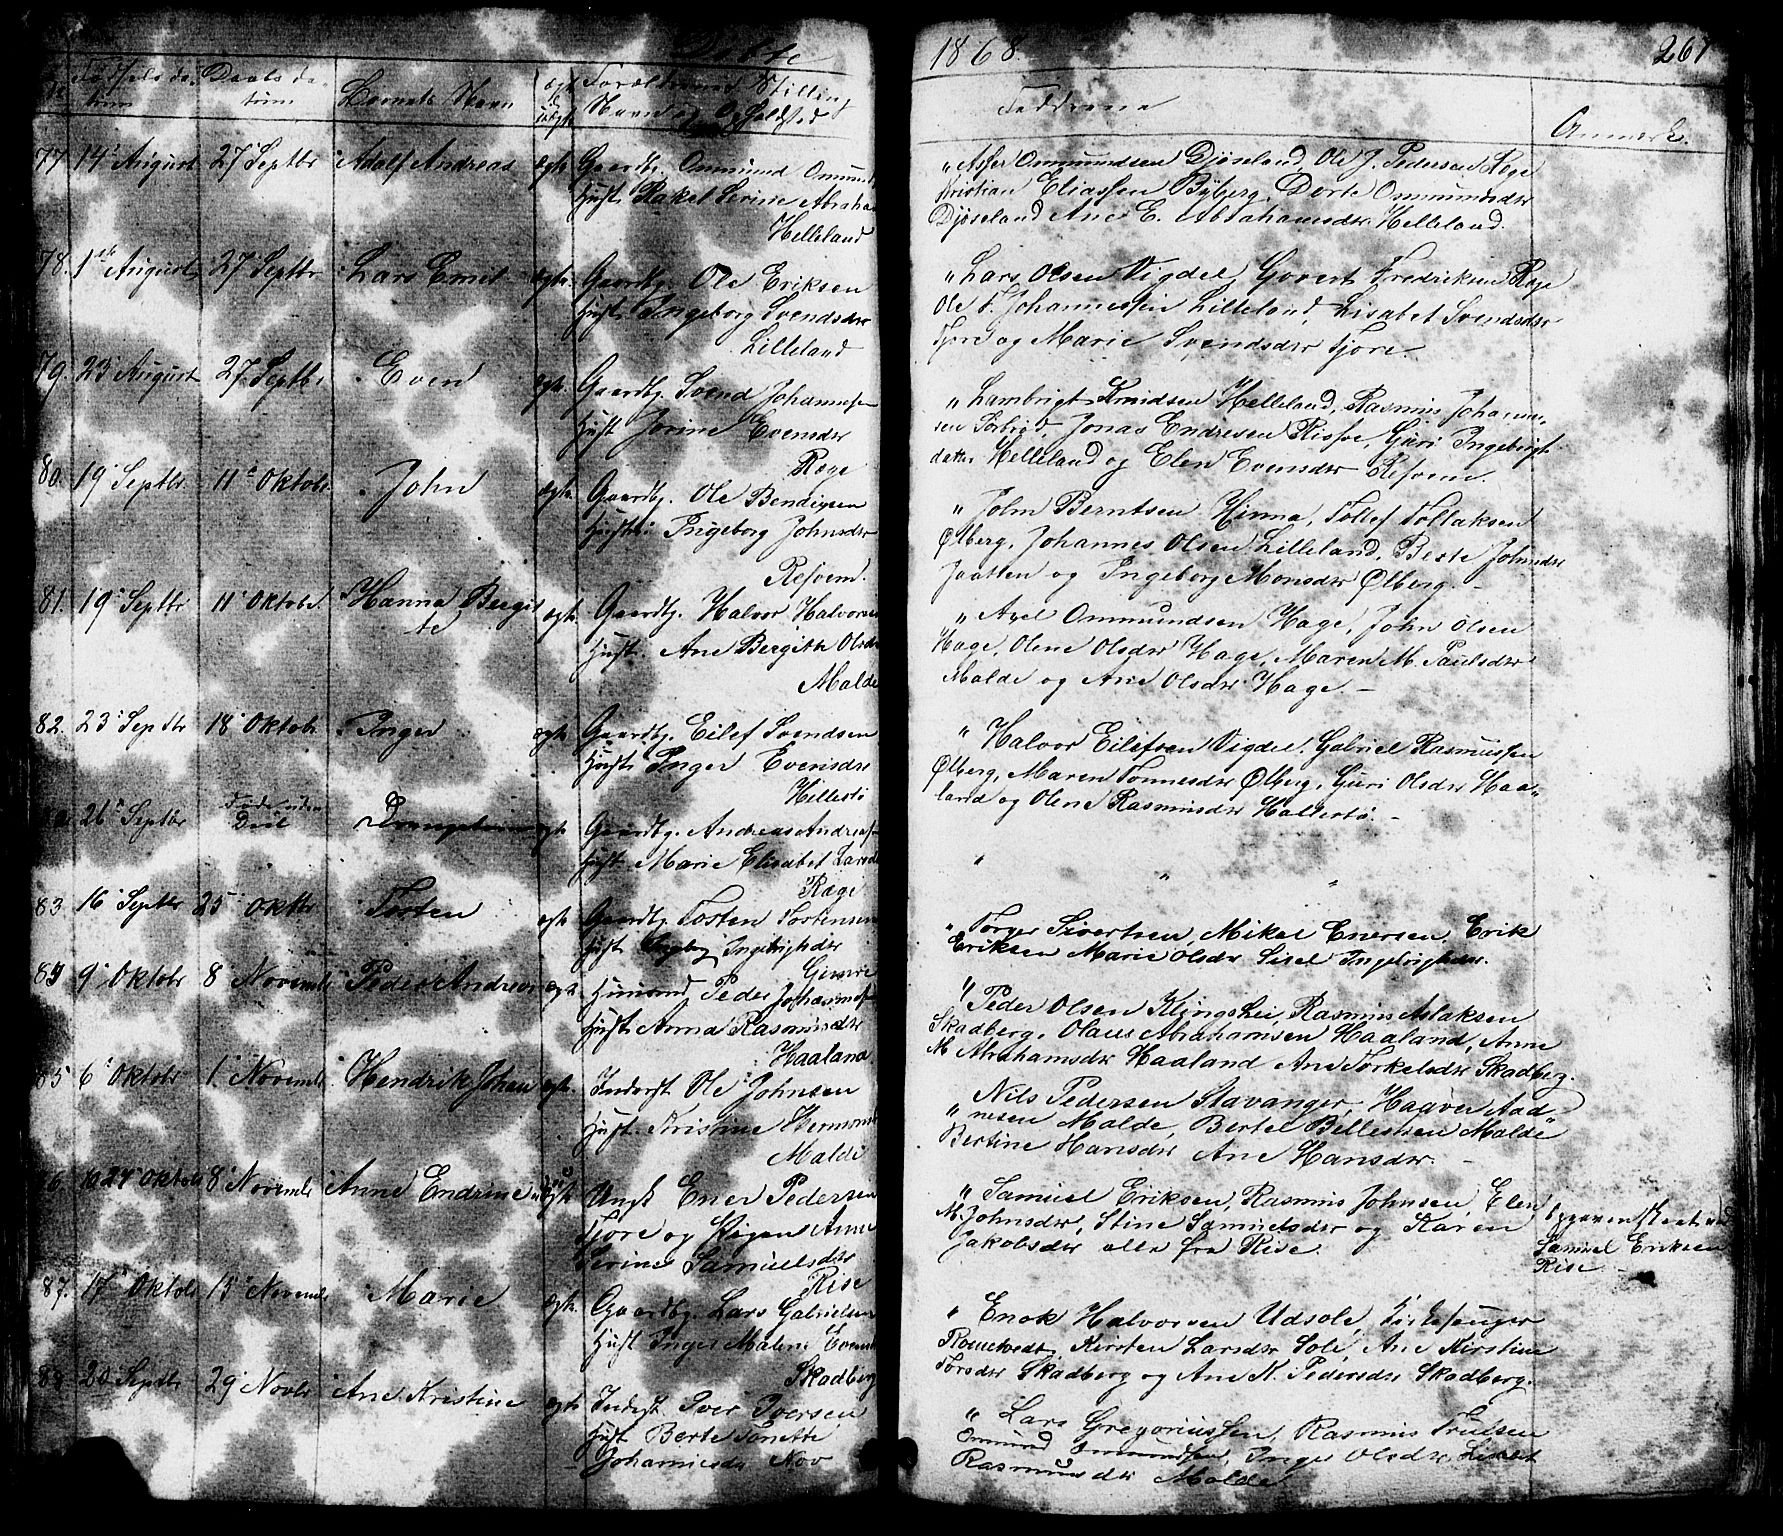 Døbte
1868.
261
Fødsels da-
tum
Daabs da-
tum
Barnets Navn
Forældrenes Stilling
Navn og Opholdsted
Faddrene
Anmerk.
77. 14 August 27 Septbr Adolf Andreas ægte Gaardbr. Ommund Ommunds
Hust. Rakel Serine Abraha
Helleland
" Asser Ommundsen Djøseland, Ole J. Pedersen Røge
Kristian Eliassen Byberg, Dorte Ommundsdr
Djøseland Ane E. Abrahamsdr Helleland.
78. 1ste August 27 Septbr Lars Emil ægte Gaardbr. Ole Eriksen
Hust. Ingeborg Svendsdr
Lilleland
" Lars Olsen Vigdel, Govert Fredriksen Røge
Ole F. Johannessen Lilleland, Lisabet Svendsdr
Tjore og Marie Svendsdr Tjore.
79. 23 August 27 Septbr Even ægte Gaardbr. Svend Johannese
Hust Jorine Evensdr
Ræge
" Lambrigt Knudsen Helleland, Rasmus Johann,
sen Sørbrød, Jonas Endresen Risse, Guri Ingebrigt
datter Helleland og Elen Evensdr Refsem.
80. 19 Septbr 11 Oktobr John ægte Gaardbr. Ole Bendigsen
Hustr: Ingeborg Johnsdr
Refsem.
" John Berntsen Hinna, Tollef Tollaksen
Ølberg, Johannes Olsen Lilleland, Berte Johnsdr
Jaatten og Ingeborg Monsdr Ølberg. -
81. 19 Septbr 11 Oktobr. Hanna Bergit
te ægte Gaardbr. Halvor Halvorsen
Hust. Ane Bergitte Olsdr
Malde
" Axel Ommundsen Hage, John Olsen
Hage, Olene Olsdr Hage, Maren M. Paulsdr
Malde og Ane Olsdr Hage -
82. 23 Septbr 18 Oktobr Inger ægte Gaardbr. Eilef Svendsen
Hust. Inger Evensdr
Hellestø
" Halvor Eilefsen Vigdel, Gabriel Rasmussen
Ølberg, Maren Tønnesdr Ølberg, Guri Olsdr Haa-
land og Olene Rasmusdr Hallestø. -
26 Septbr Føde uden
Drengebarn ægte Gaardbr. Andreas Andreas
Hust. Marie Elisabet Larsd
Ræge
" " "
83 16 Septbr 25 Oktbr Tosten ægte Gaardbr. Tosten Tostensen
Hust Ingebrigtsdr
" Torger Sivertsen, Mikal Enersen, Erik
Eriksen Marie Olsdr Sisel Ingebrigtsdr.
84 9 Oktobr 8 Novembr Peder Andrea ægte Husmand Peder Johannes
Hust. Anna Rasmusdr
Haaland
" Peder Olsen Klingshei Rasmus Aslaksen
Skadberg, Olaus Abrahamsen Haaland, Anne
M. Abrahamsdr Haaland Ane Torkelsdr Skadberg.
85 6 Oktobr 1 Novembr Hendrik Johan ægte. Inderst Ole Johnsen
Hust. Kristine Hermons
Malde
Nils Pedersen Stavanger, Haaver Aad
" nesen Malde, Berte Bellestsen Malde
Bertine Hansdr Ane Hansdr. -
86. 24 Oktobr 8 Novembr Anne Endrine uægte Ungk Ener Pedersen
Tjore og Pigen Anne
Serine Samuelsdr
Rise
" Samuel Eriksen, Rasmus Johnsen, Elen
M. Johnsdr, Stine Samuelsdr og Karen
Jakobsdr alle fra Rise.
Samuel Eriksen
Rise -
87. 17 Oktobr 15 Novembr Marie ægte Gaardbr. Lars Gabrielsen
Hust Inger Malene Evensd
Skadberg
" Enok Halvorsen Udsole, Kirkesanger
Romstvedt, Kirsten Larsdr Sole, Ane Kirstine
Torsdr Skadberg og Ane K. Pedersdr Skadberg.
88 20 Septbr 29 Novbr Ane Kristine ægte Inderst Iver Iversen
Hust Berte Tonette
Johannesdr Nov
" Lars Gregoriussen, Rasmus Truelsen
Ommund Ommundsen, Inger Olsdr, Lisabet
Rasmusdr Malde